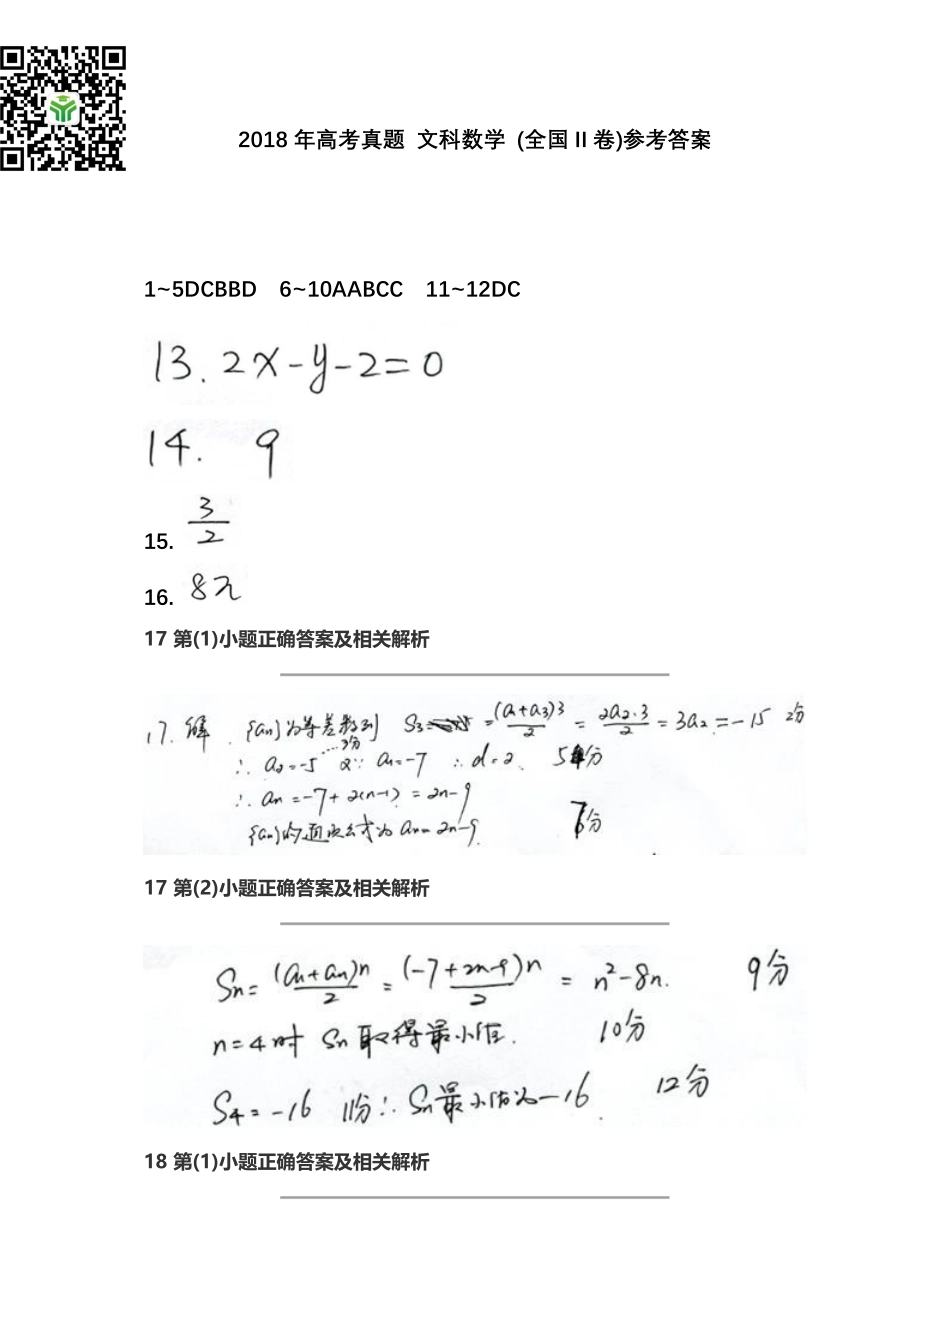 2018 年高考真题 文科数学 (全国 II 卷)参考答案
1~5DCBBD 6~10AABCC 11~12DC
13. 2x-y-2=0
14. 9
15. 3/2
16. 8π
17 第(1)小题正确答案及相关解析
17. 解. {an}为等差数列 S3 = (a1+a3)3/2 = 2a2·3/2 = 3a2 = -15 2分
∴ a2=-5 3分 又∵ a1=-7 ∴ d=2. 5分
∴ an=-7+2(n-1)=2n-9
{an}的通项公式为 an=2n-9. 分
17 第(2)小题正确答案及相关解析
Sn= (a1+an)n/2 = (-7+2n-9)n/2 = n²-8n. 9分
n=4时 Sn 取得最小值. 10分
S4=-16 11分 ∴ Sn最小值为-16. 12分
18 第(1)小题正确答案及相关解析